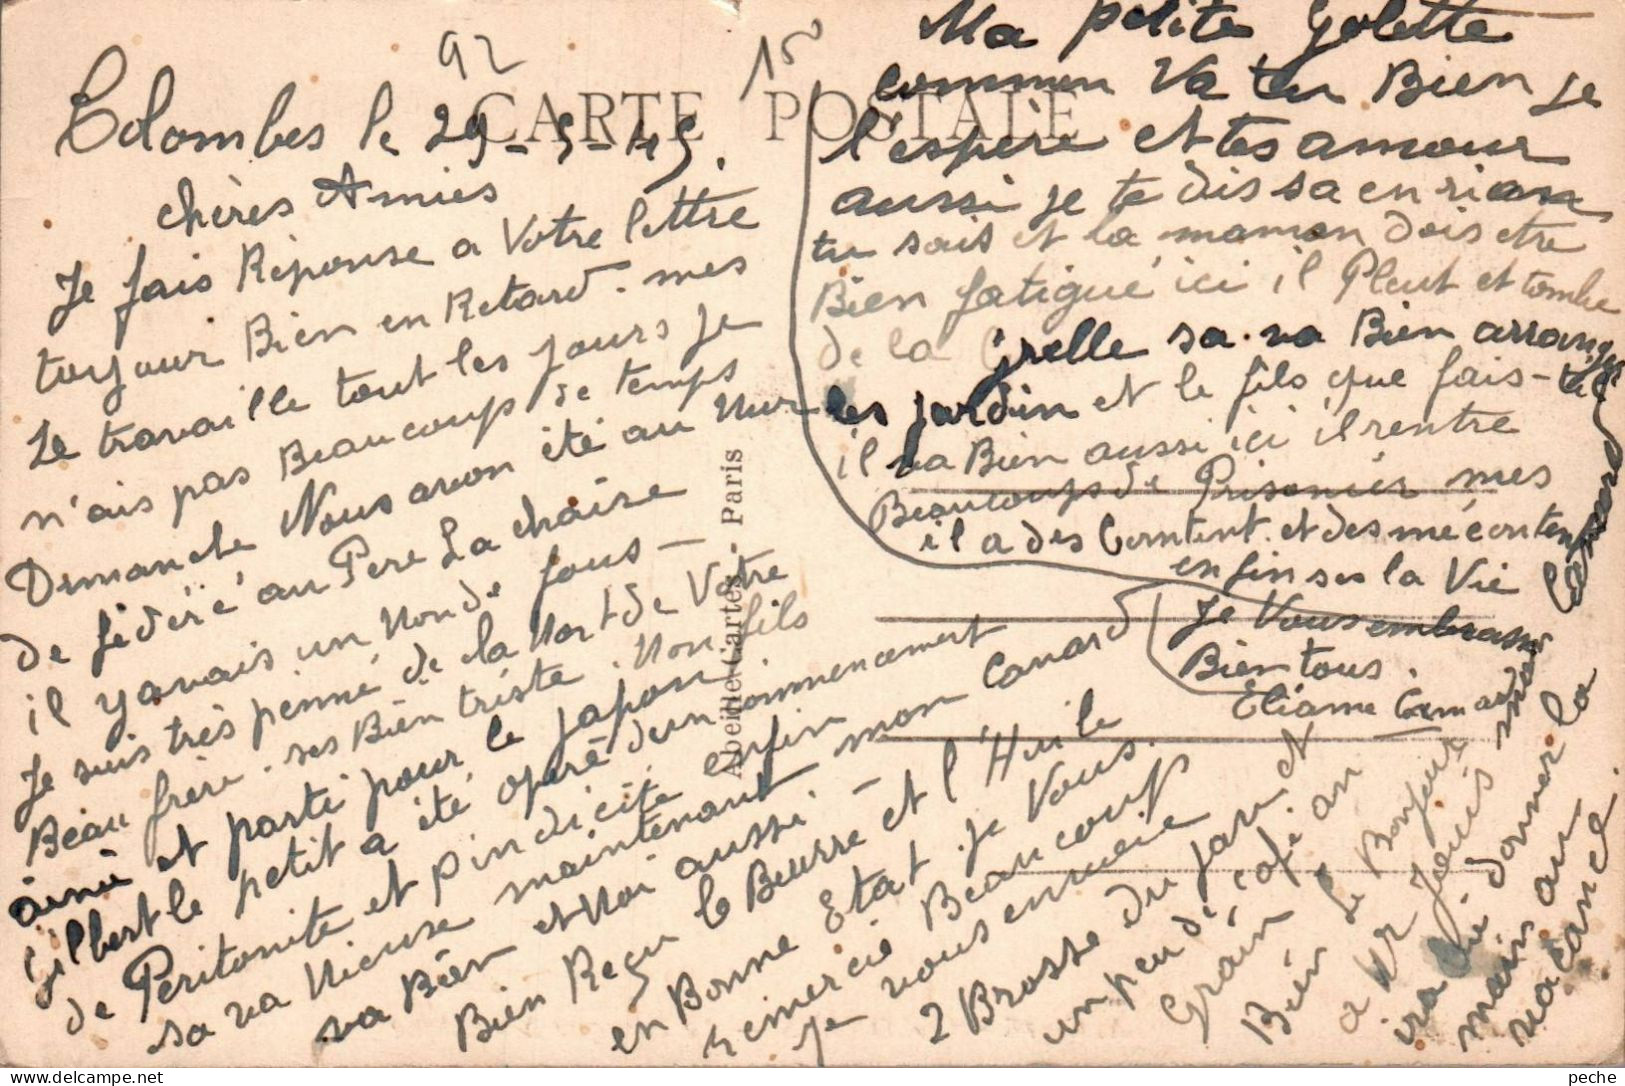 92
150
CARTE POSTALE
Colombes le 29-5-45.
chères Amies
Je fais Réponse a Votre lettre
toujour Bien en Retard. mes
Le travaille tout les jours je
n'ais pas Beaucoup de temps
Dimanche Nous avon été au Mur
de fédéré au Pere La chaise
il yavais un Monde fous —
Je suis très penné de la Mort de Votre
Beau frère. ses Bien triste. Mon fils
ainé et parti pour le japon
Gilbert le petit a été opéré d'un commencement
de Péritonite et pindicite enfin
sa va Mieuse maintenant mon Canard
va Bien et Moi aussi. —
Bien Reçu le Beurre et l'Huile
en Bonne Etat. je Vous.
remercie Beaucoup
je vous envoie
2 Brosse du jam et
un peu de café an
Grain
Bien Le Bonjour
a Mr Jouis
ira
donner la
main au
vacance.
Ma petite Golette
commen Va tu Bien je
l'espère et tes amour
aussi je te dis sa en rian
tu sais et la maman dois etre
Bien fatigué ici il Pleut et tombe
de la Grelle sa va Bien arranger
les jardin et le fils que fais-til
il va Bien aussi ici il rentre
Beaucoups de Prisonier mes
il a des Contint. et des mécontent
enfin ses la Vie
Je Vous embrasse
Bien tous.
Éliane
Abeille-Cartes - Paris
peche